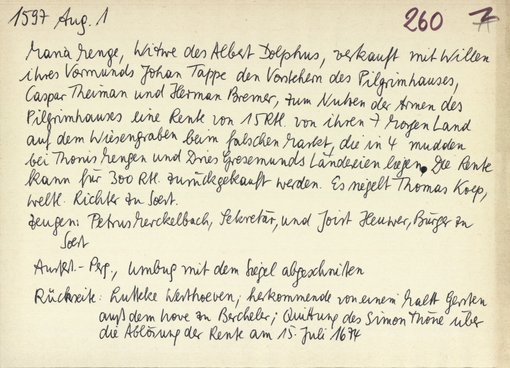 1597 Aug. 1 260
Maria Menge, Witwe des Albert Dolphus, verkauft mit Willen
ihres Vormunds Johan Tappe den Vorstehern des Pilgrimhauses,
Caspar Theiman und Herman Bremer, zum Nutzen der Armen des
Pilgrimhauses eine Rente von 15 Rtl. von ihren 7 Morgen Land
auf dem Wiesengraben beim falschen Markt, die in 4 mudden
bei Thonis Mengen und Dries Gresemunds Ländereien liegen. Die Rente
kann für 300 Rtl. zurückgekauft werden. Es siegelt Thomas Koep,
weltl. Richter zu Soest.
Zeugen: Petrus Merckelbach, Sekretär, und Joist Heuwer, Bürger zu
Soest
Ausf. - Perg., Umbug mit dem Siegel abgeschnitten
Rückseite: Lutteke Westhoeven; herkommende von einem Maltt Gersten
auß dem hove zu Bercheler; Quittung des Simon Thöne über
die Ablösung der Rente am 15. Juli 1674